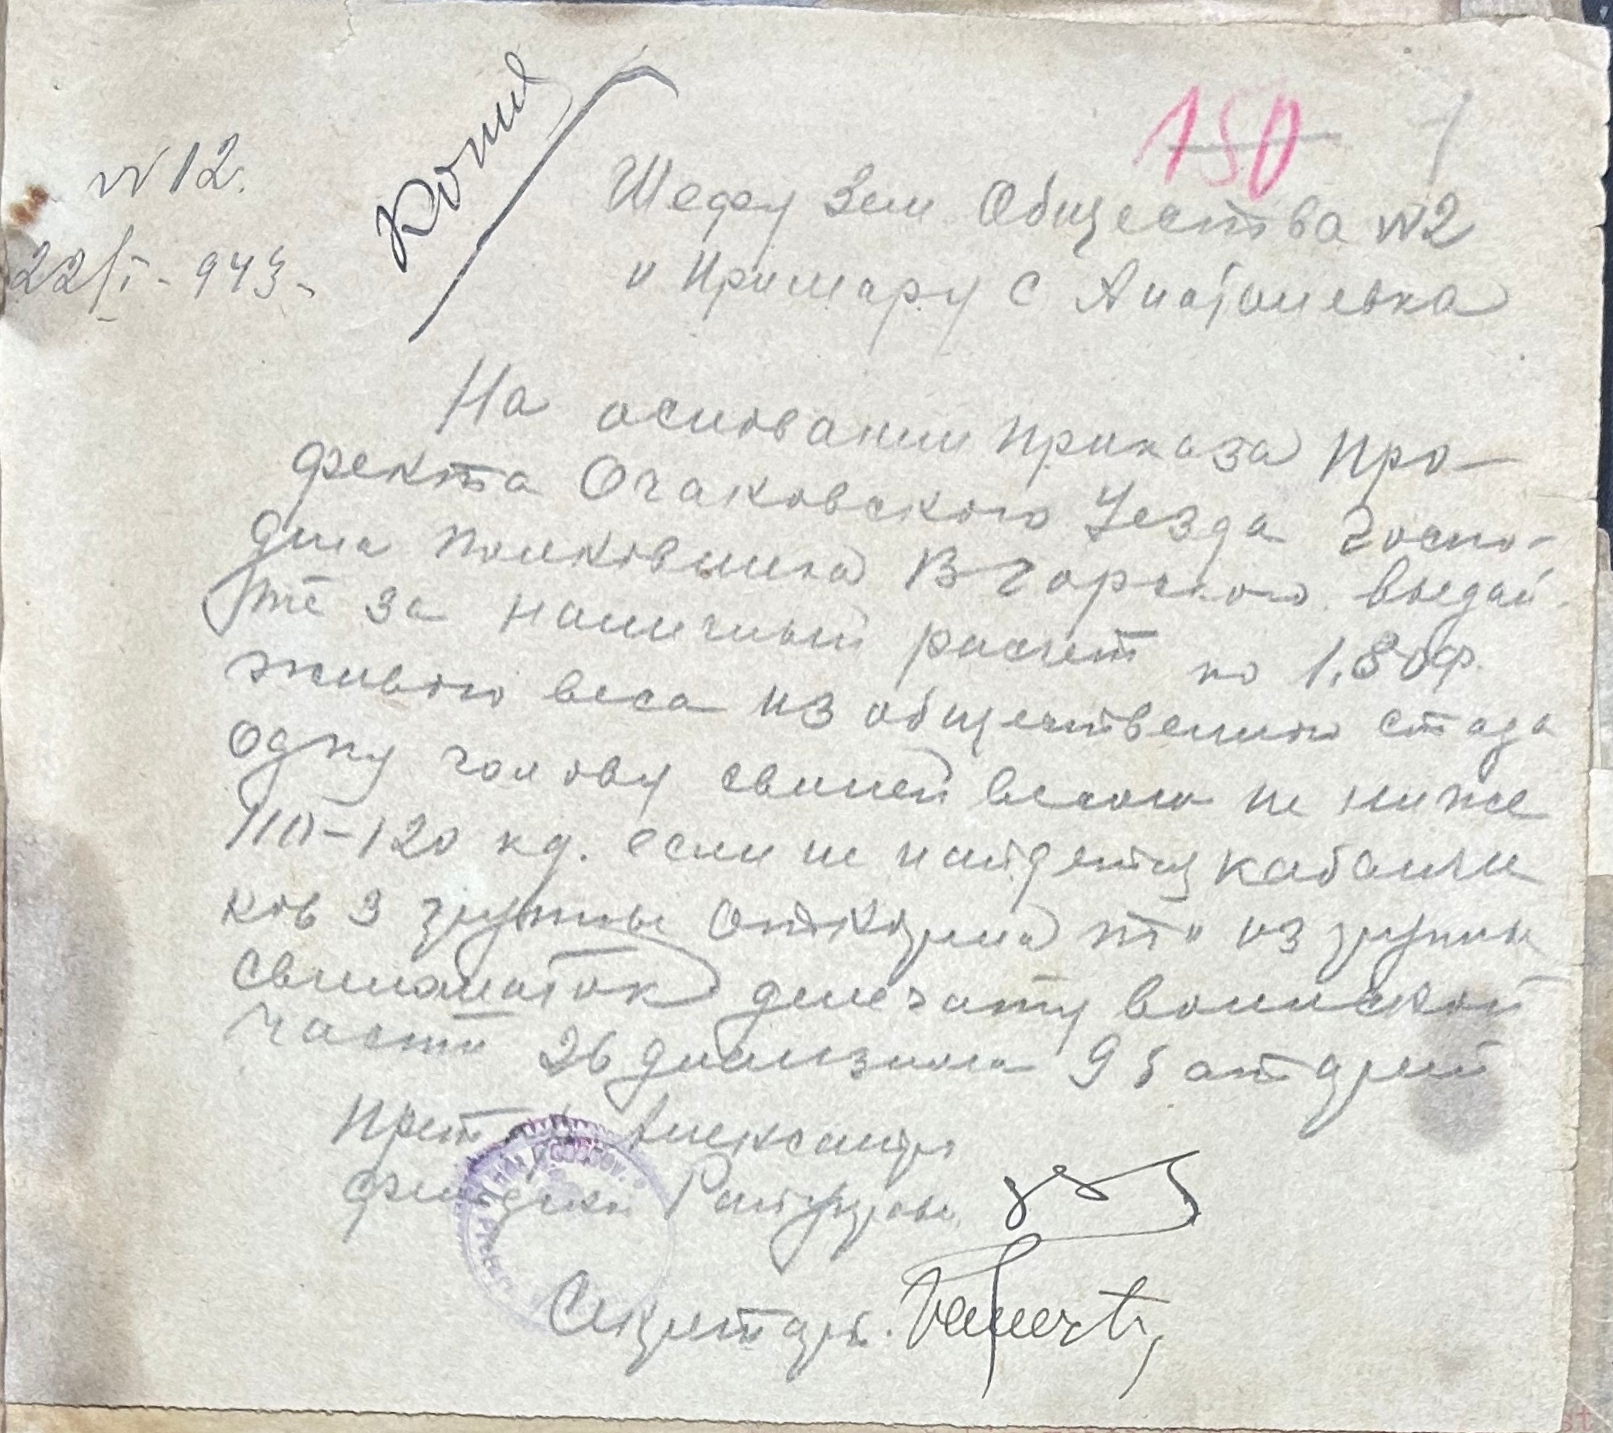 N 12.
22/I - 943 -
Копия
150 1
Шефу Зем Общества N2
и Примару с Анатольевка
На основании Приказа Пре-
фекта Очаковского Уезда Госпо-
дина Полковника В Горского выдай-
те за наличный расчет по 1,80 ф.
живого веса из общественного стада
одну голову свиней весом не ниже
110-120 кд. если не найдется кабанчи
ков з группы откорма то из групы
свиноматок делегату воинской
части 26 дивизиона 9 батареи
Прет Александр
Секретарь.